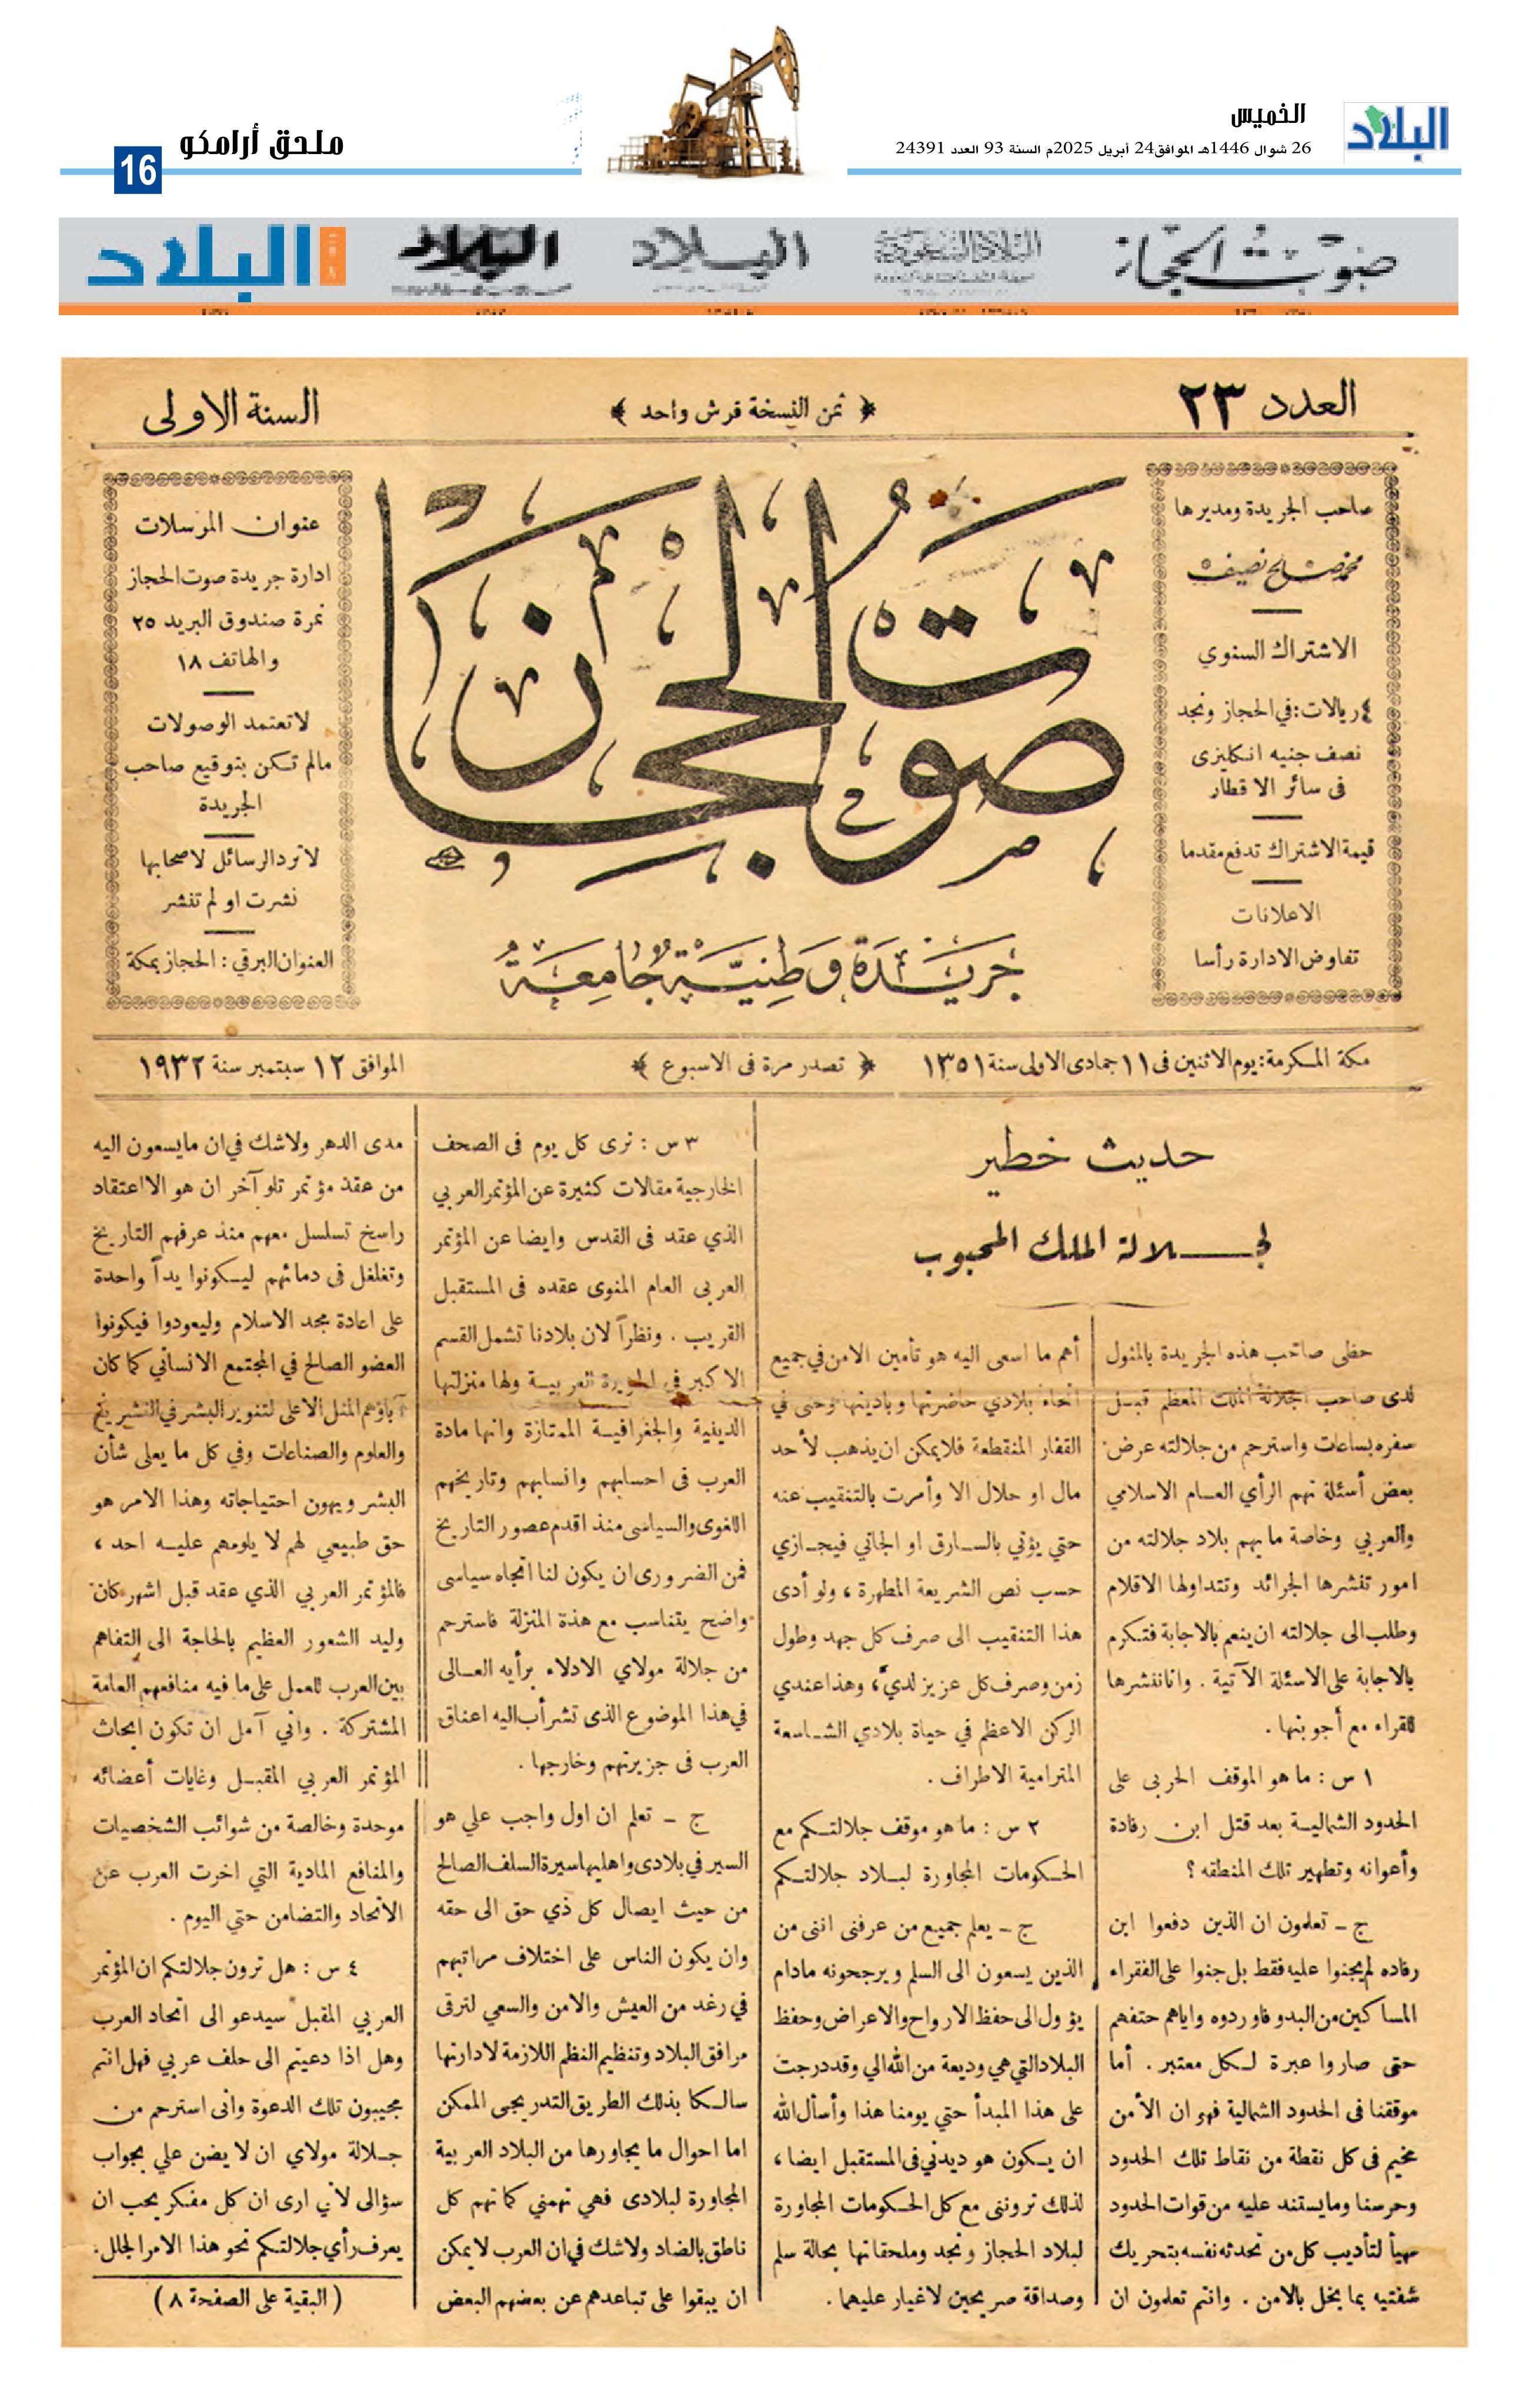 البلاد
الخميس
26 شوال 1446هـ الموافق24 أبريل 2025م السنة 93 العدد 24391
ملحق أرامكو
16
صوت الحجاز
البلاد السعودية
البلاد
البلاد
البلاد
العدد ٢٣
﴿ ثمن النسخة قرش واحد ﴾
السنة الاولى
صاحب الجريدة ومديرها
محمد صالح نصيف
الاشتراك السنوي
٤ ريالات: في الحجاز ونجد
نصف جنيه انكليزى
فى سائر الاقطار
قيمة الاشتراك تدفع مقدما
الاعلانات
تفاوض الادارة رأسا
صوت الحجاز
جريدة وطنية جامعة
عنوان المرسلات
ادارة جريدة صوت الحجاز
نمرة صندوق البريد ٢٥
والهاتف ١٨
لا تعتمد الوصولات
مالم تكن بتوقيع صاحب
الجريدة
لا ترد الرسائل لاصحابها
نشرت او لم تنشر
العنوان البرقي : الحجاز بمكة
مكة المكرمة: يوم الاثنين فى ١١ جمادى الاولى سنة ١٣٥١
﴿ تصدر مرة فى الاسبوع ﴾
الموافق ١٢ سبتمبر سنة ١٩٣٢
حديث خطير
لجلالة الملك المحبوب
حظى صاحب هذه الجريدة بالمثول
لدى صاحب الجلالة الملك المعظم قبل
سفره بساعات واسترحم من جلالته عرض
بعض أسئلة تهم الرأي العام الاسلامي
والعربي وخاصة ما يهم بلاد جلالته من
امور تنشرها الجرائد وتتداولها الاقلام
وطلب الى جلالته ان ينعم بالاجابة فتكرم
بالاجابة على الاسئلة الآتية . واننا ننشرها
للقراء مع أجوبتها .
١ س : ما هو الموقف الحربى على
الحدود الشمالية بعد قتل ابن رفادة
وأعوانه وتطهير تلك المنطقه ؟
ج – تعلمون ان الذين دفعوا ابن
رفاده لم يجنوا عليه فقط بل جنوا على الفقراء
المساكين من البدو فاوردوه واياهم حتفهم
حتى صاروا عبرة لكل معتبر . أما
موقفنا فى الحدود الشمالية فهو ان الأمن
مخيم فى كل نقطة من نقاط تلك الحدود
وحرسنا وما يستند عليه من قوات الحدود
مهيأ لتأديب كل من تحدثه نفسه بتحريك
شفتيه بما يخل بالامن . وانتم تعلمون ان
أهم ما اسعى اليه هو تأمين الامن في جميع
أنحاء بلادي حاضرتها وباديتها وحتى في
القفار المنقطعة فلا يمكن ان يذهب لأحد
مال او حلال الا وأمرت بالتنقيب عنه
حتي يؤتي بالسارق او الجاني فيجازي
حسب نص الشريعة المطهرة ، ولو أدى
هذا التنقيب الى صرف كل جهد وطول
زمن وصرف كل عزيز لدي، وهذا عندي
الركن الاعظم في حياة بلادي الشاسعة
المترامية الاطراف .
٢ س : ما هو موقف جلالتكم مع
الحكومات المجاورة لبلاد جلالتكم
ج – يعلم جميع من عرفنى اننى من
الذين يسعون الى السلم ويرجحونه مادام
يؤول الى حفظ الارواح والاعراض وحفظ
البلاد التي هي وديعة من الله الي وقد درجت
على هذا المبدأ حتي يومنا هذا وأسأل الله
ان يكون هو ديدني فى المستقبل ايضا ،
لذلك تروننى مع كل الحكومات المجاورة
لبلاد الحجاز ونجد وملحقاتها بحالة سلم
وصداقة صريحين لاغبار عليهما .
٣ س : نرى كل يوم فى الصحف
الخارجية مقالات كثيرة عن المؤتمر العربي
الذي عقد فى القدس وايضا عن المؤتمر
العربى العام المنوى عقده فى المستقبل
القريب . ونظراً لان بلادنا تشمل القسم
الاكبر في الجزيرة العربية ولها منزلتها
الدينية والجغرافية الممتازة وانها مادة
العرب فى احسابهم وانسابهم وتاريخهم
اللغوى والسياسى منذ اقدم عصور التاريخ
فمن الضرورى ان يكون لنا اتجاه سياسى
واضح يتناسب مع هذة المنزلة فاسترحم
من جلالة مولاي الادلاء برأيه العالى
في هذا الموضوع الذى تشرأب اليه اعناق
العرب فى جزيرتهم وخارجها .
ج – تعلم ان اول واجب علي هو
السير في بلادى واهليها سيرة السلف الصالح
من حيث ايصال كل ذي حق الى حقه
وان يكون الناس على اختلاف مراتبهم
في رغد من العيش والامن والسعي لترقى
مرافق البلاد وتنظيم النظم اللازمة لادارتها
سالكا بذلك الطريق التدريجى الممكن
اما احوال ما يجاورها من البلاد العربية
المجاورة لبلادى فهي تهمني كما تهم كل
ناطق بالضاد ولاشك في ان العرب لايمكن
ان يبقوا على تباعدهم عن بعضهم البعض
مدى الدهر ولاشك في ان مايسعون اليه
من عقد مؤتمر تلو آخر ان هو الا اعتقاد
راسخ تسلسل معهم منذ عرفهم التاريخ
وتغلغل فى دمائهم ليكونوا يداً واحدة
على اعادة مجد الاسلام وليعودوا فيكونوا
العضو الصالح في المجتمع الانساني كما كان
آباؤهم المثل الاعلى لتنوير البشر في التشريع
والعلوم والصناعات وفي كل ما يعلى شأن
البشر ويهون احتياجاته وهذا الامر هو
حق طبيعي لهم لا يلومهم عليه احد ،
فالمؤتمر العربي الذي عقد قبل اشهر كان
وليد الشعور العظيم بالحاجة الى التفاهم
بين العرب للعمل على ما فيه منافعهم العامة
المشتركة . واني آمل ان تكون ابحاث
المؤتمر العربي المقبل وغايات أعضائه
موحدة وخالصة من شوائب الشخصيات
والمنافع المادية التي اخرت العرب عن
الاتحاد والتضامن حتي اليوم .
٤ س : هل ترون جلالتكم ان المؤتمر
العربي المقبل سيدعو الى اتحاد العرب
وهل اذا دعيتم الى حلف عربي فهل انتم
مجيبون تلك الدعوة وانى استرحم من
جلالة مولاي ان لا يضن علي بجواب
سؤالى لأني ارى ان كل مفكر يحب ان
يعرف رأي جلالتكم نحو هذا الامر الجلل.
( البقية على الصفحة ٨ )